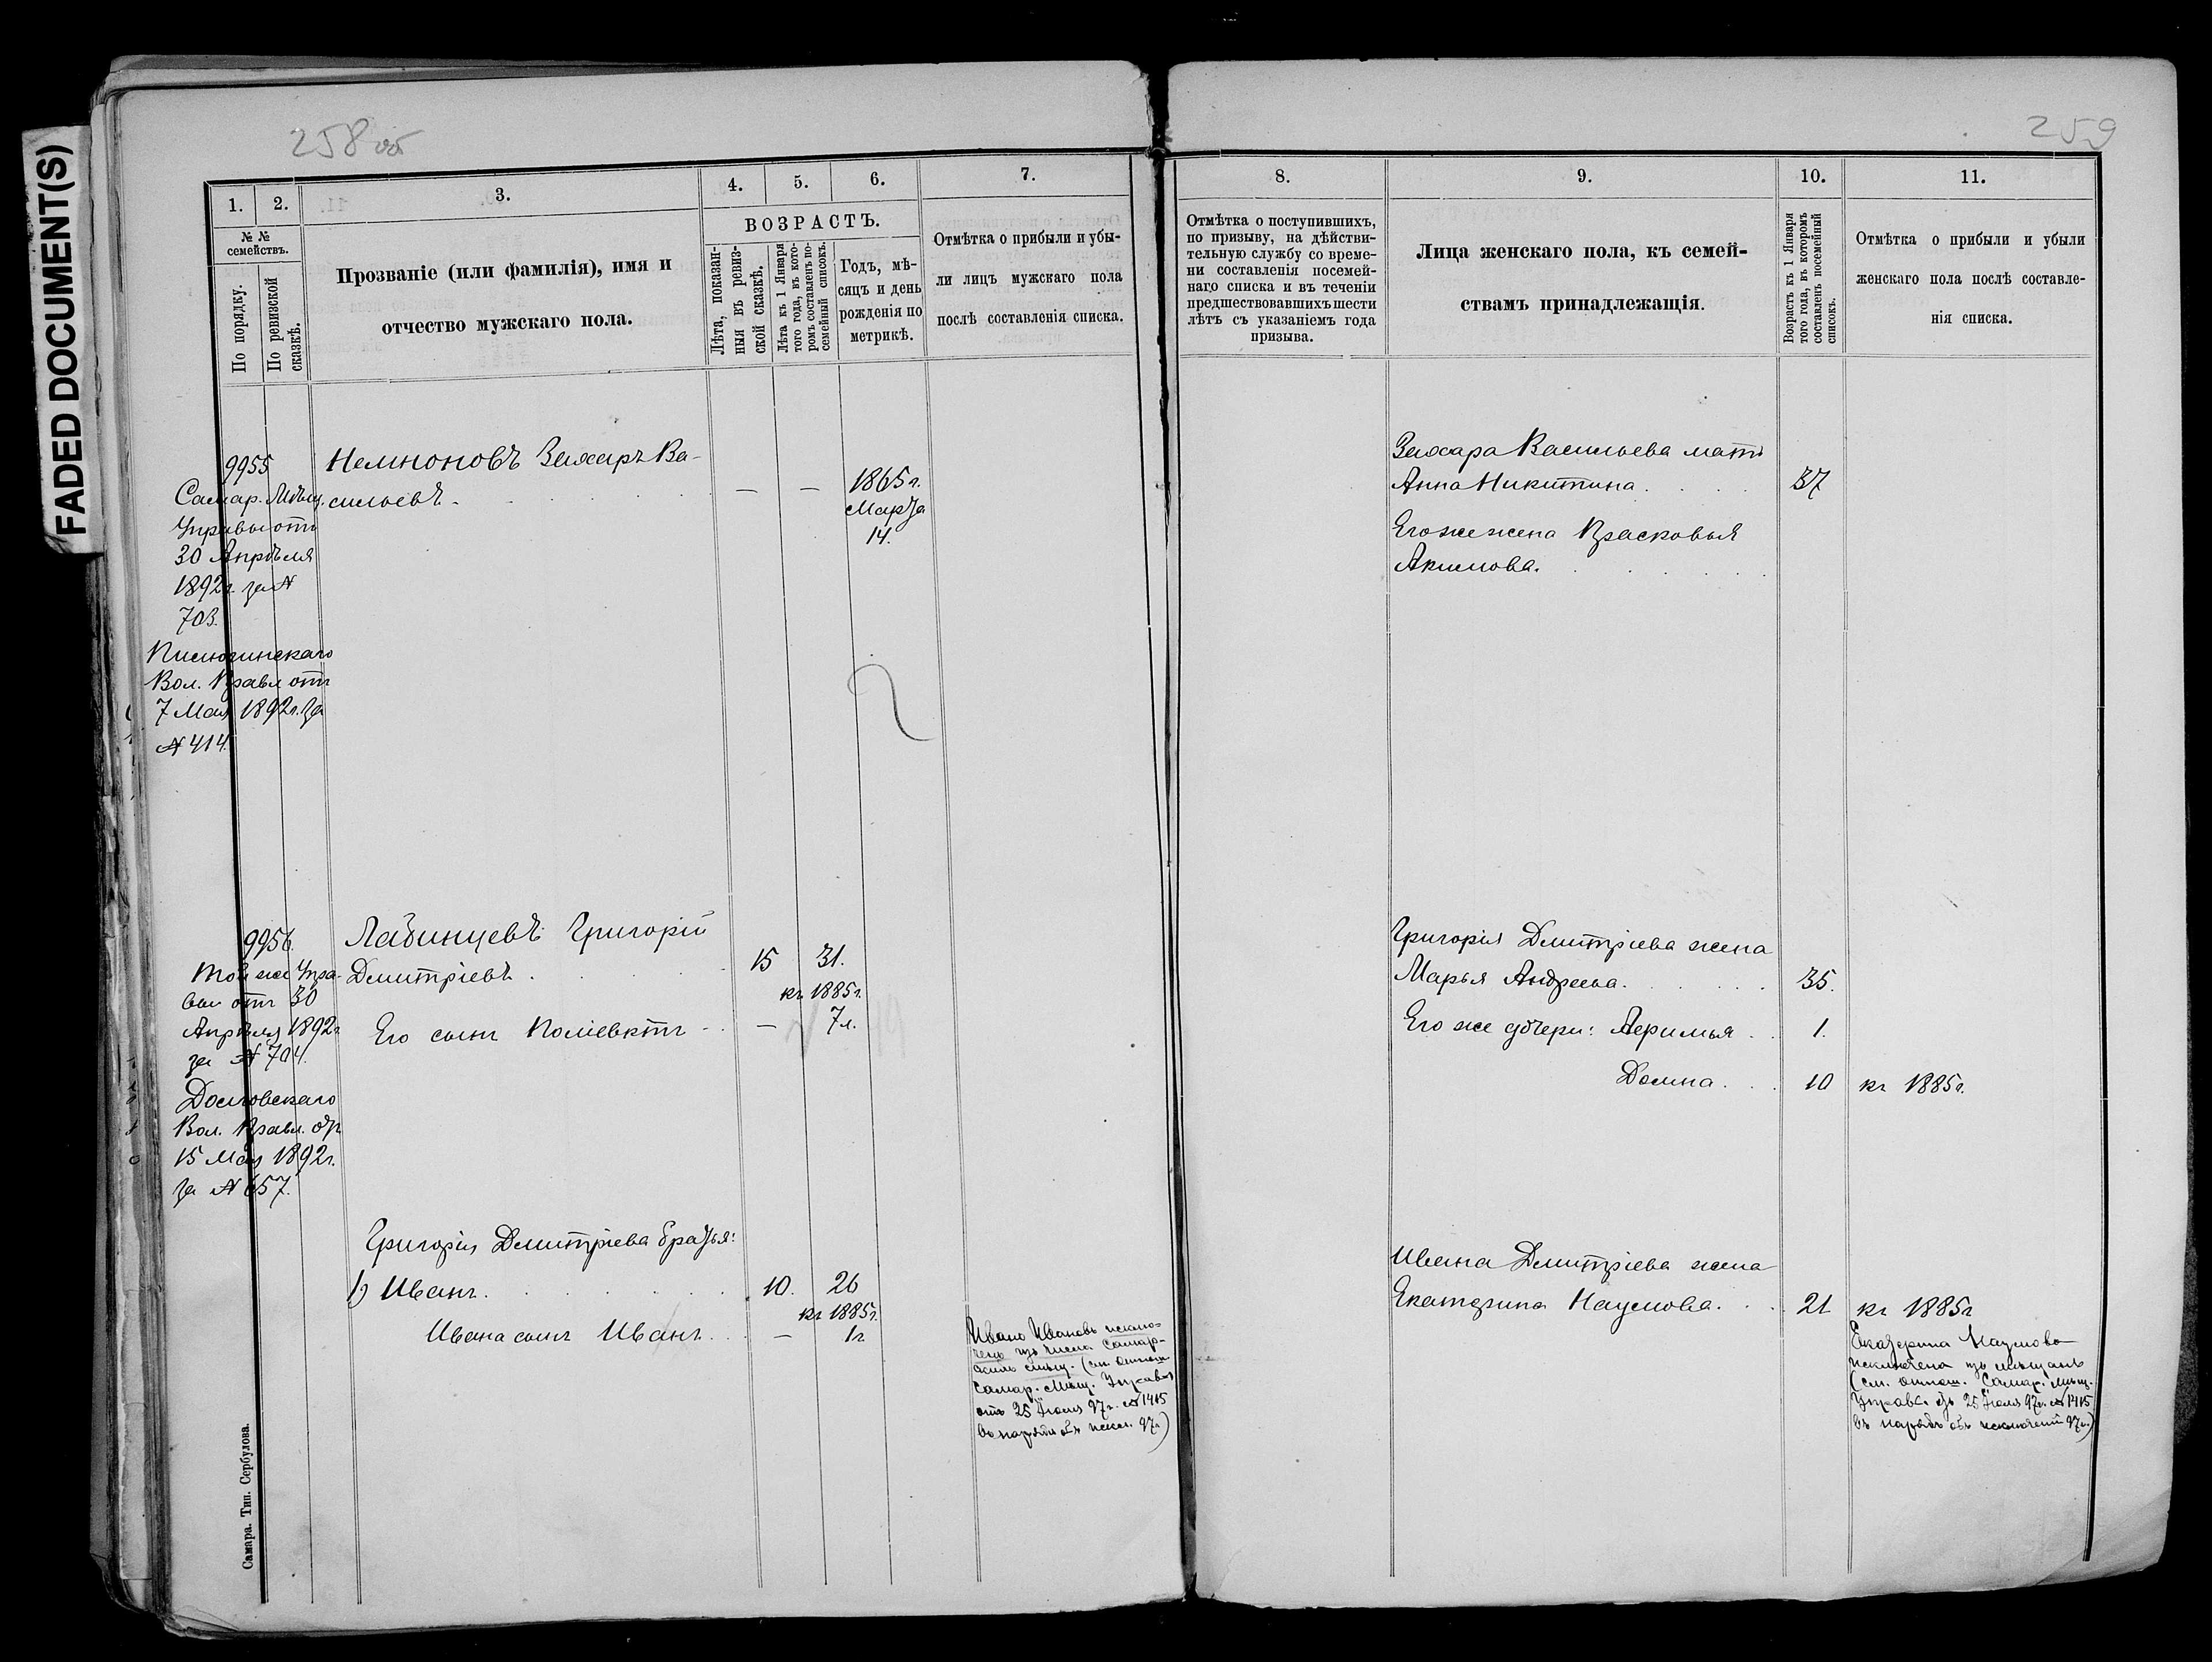 FADED DOCUMENT(S)
258 об
1.
2.
3.
4.
5.
6.
7.
№ №
семействъ.
По порядку.
По ревизской
сказкѣ.
Прозваніе (или фамилія), имя и
отчество мужскаго пола.
ВОЗРАСТЪ.
Лѣта, показан-
ныя въ ревиз-
ской сказкѣ.
Лѣта къ 1 Января
того года, въ кото-
ромъ составленъ по-
семейный списокъ.
Годъ, мѣ-
сяцъ и день
рожденія по
метрикѣ.
Отмѣтка о прибыли и убы-
ли лицъ мужскаго пола
послѣ составленія списка.
9955
Самар. Мѣщ.
Управы отъ
30 Апрѣля
1892г. за №
703.
Вол. Правл отъ
7 Мая 1892г. за
№ 414.
Захаръ Ва-
сильевъ.
— —
1865 г.
Марта
14.
9956.
Той же Упра-
вы отъ 30
Апрѣля 1892г
за № 704.
Вол. Правл. отъ
15 Мая 1892г.
за № 657.
Лабинцевъ Григорій
Дмитріевъ.
15 31.
къ 1885г.
Его сынъ Поліевктъ —
7 л.
Григорія Дмитріева братья:
1) Иванъ. 10. 26
къ 1885г.
Ивана сынъ Иванъ. — 1 г.
Иванъ Ивановъ исклю-
ченъ изъ числа Самар-
скихъ мѣщ. (см. отнош.
Самар. Мѣщ. Управы
отъ 25 Іюля 97 г. № 1415
въ нарядѣ объ искл. 97 г.)
Самара. Тип. Сербулова.
259
8.
9.
10.
11.
Отмѣтка о поступившихъ,
по призыву, на дѣйстви-
тельную службу со време-
ни составленія посемей-
наго списка и въ теченіи
предшествовавшихъ шести
лѣтъ съ указаніемъ года
призыва.
Лица женскаго пола, къ семей-
ствамъ принадлежащія.
Возрастъ къ 1 Января
того года, въ которомъ
составленъ посемейный
списокъ.
Отмѣтка о прибыли и убыли
женскаго пола послѣ составле-
нія списка.
Захара Васильева мать
Анна Никитина. 37
Его же жена Прасковья
Акимова.
Григорія Дмитріева жена
Марья Андреева. 35.
Его же дочери: 1.
Домна. 10 къ 1885г.
Ивана Дмитріева жена
Екатерина Наумова. 21 къ 1885г
Екатерина Наумова
исключена изъ мѣщанъ
(см. отнош. Самар. Мѣщ.
Управы отъ 25 Іюля 97 г. № 1415
въ нарядѣ объ исключеніи 97 г.)